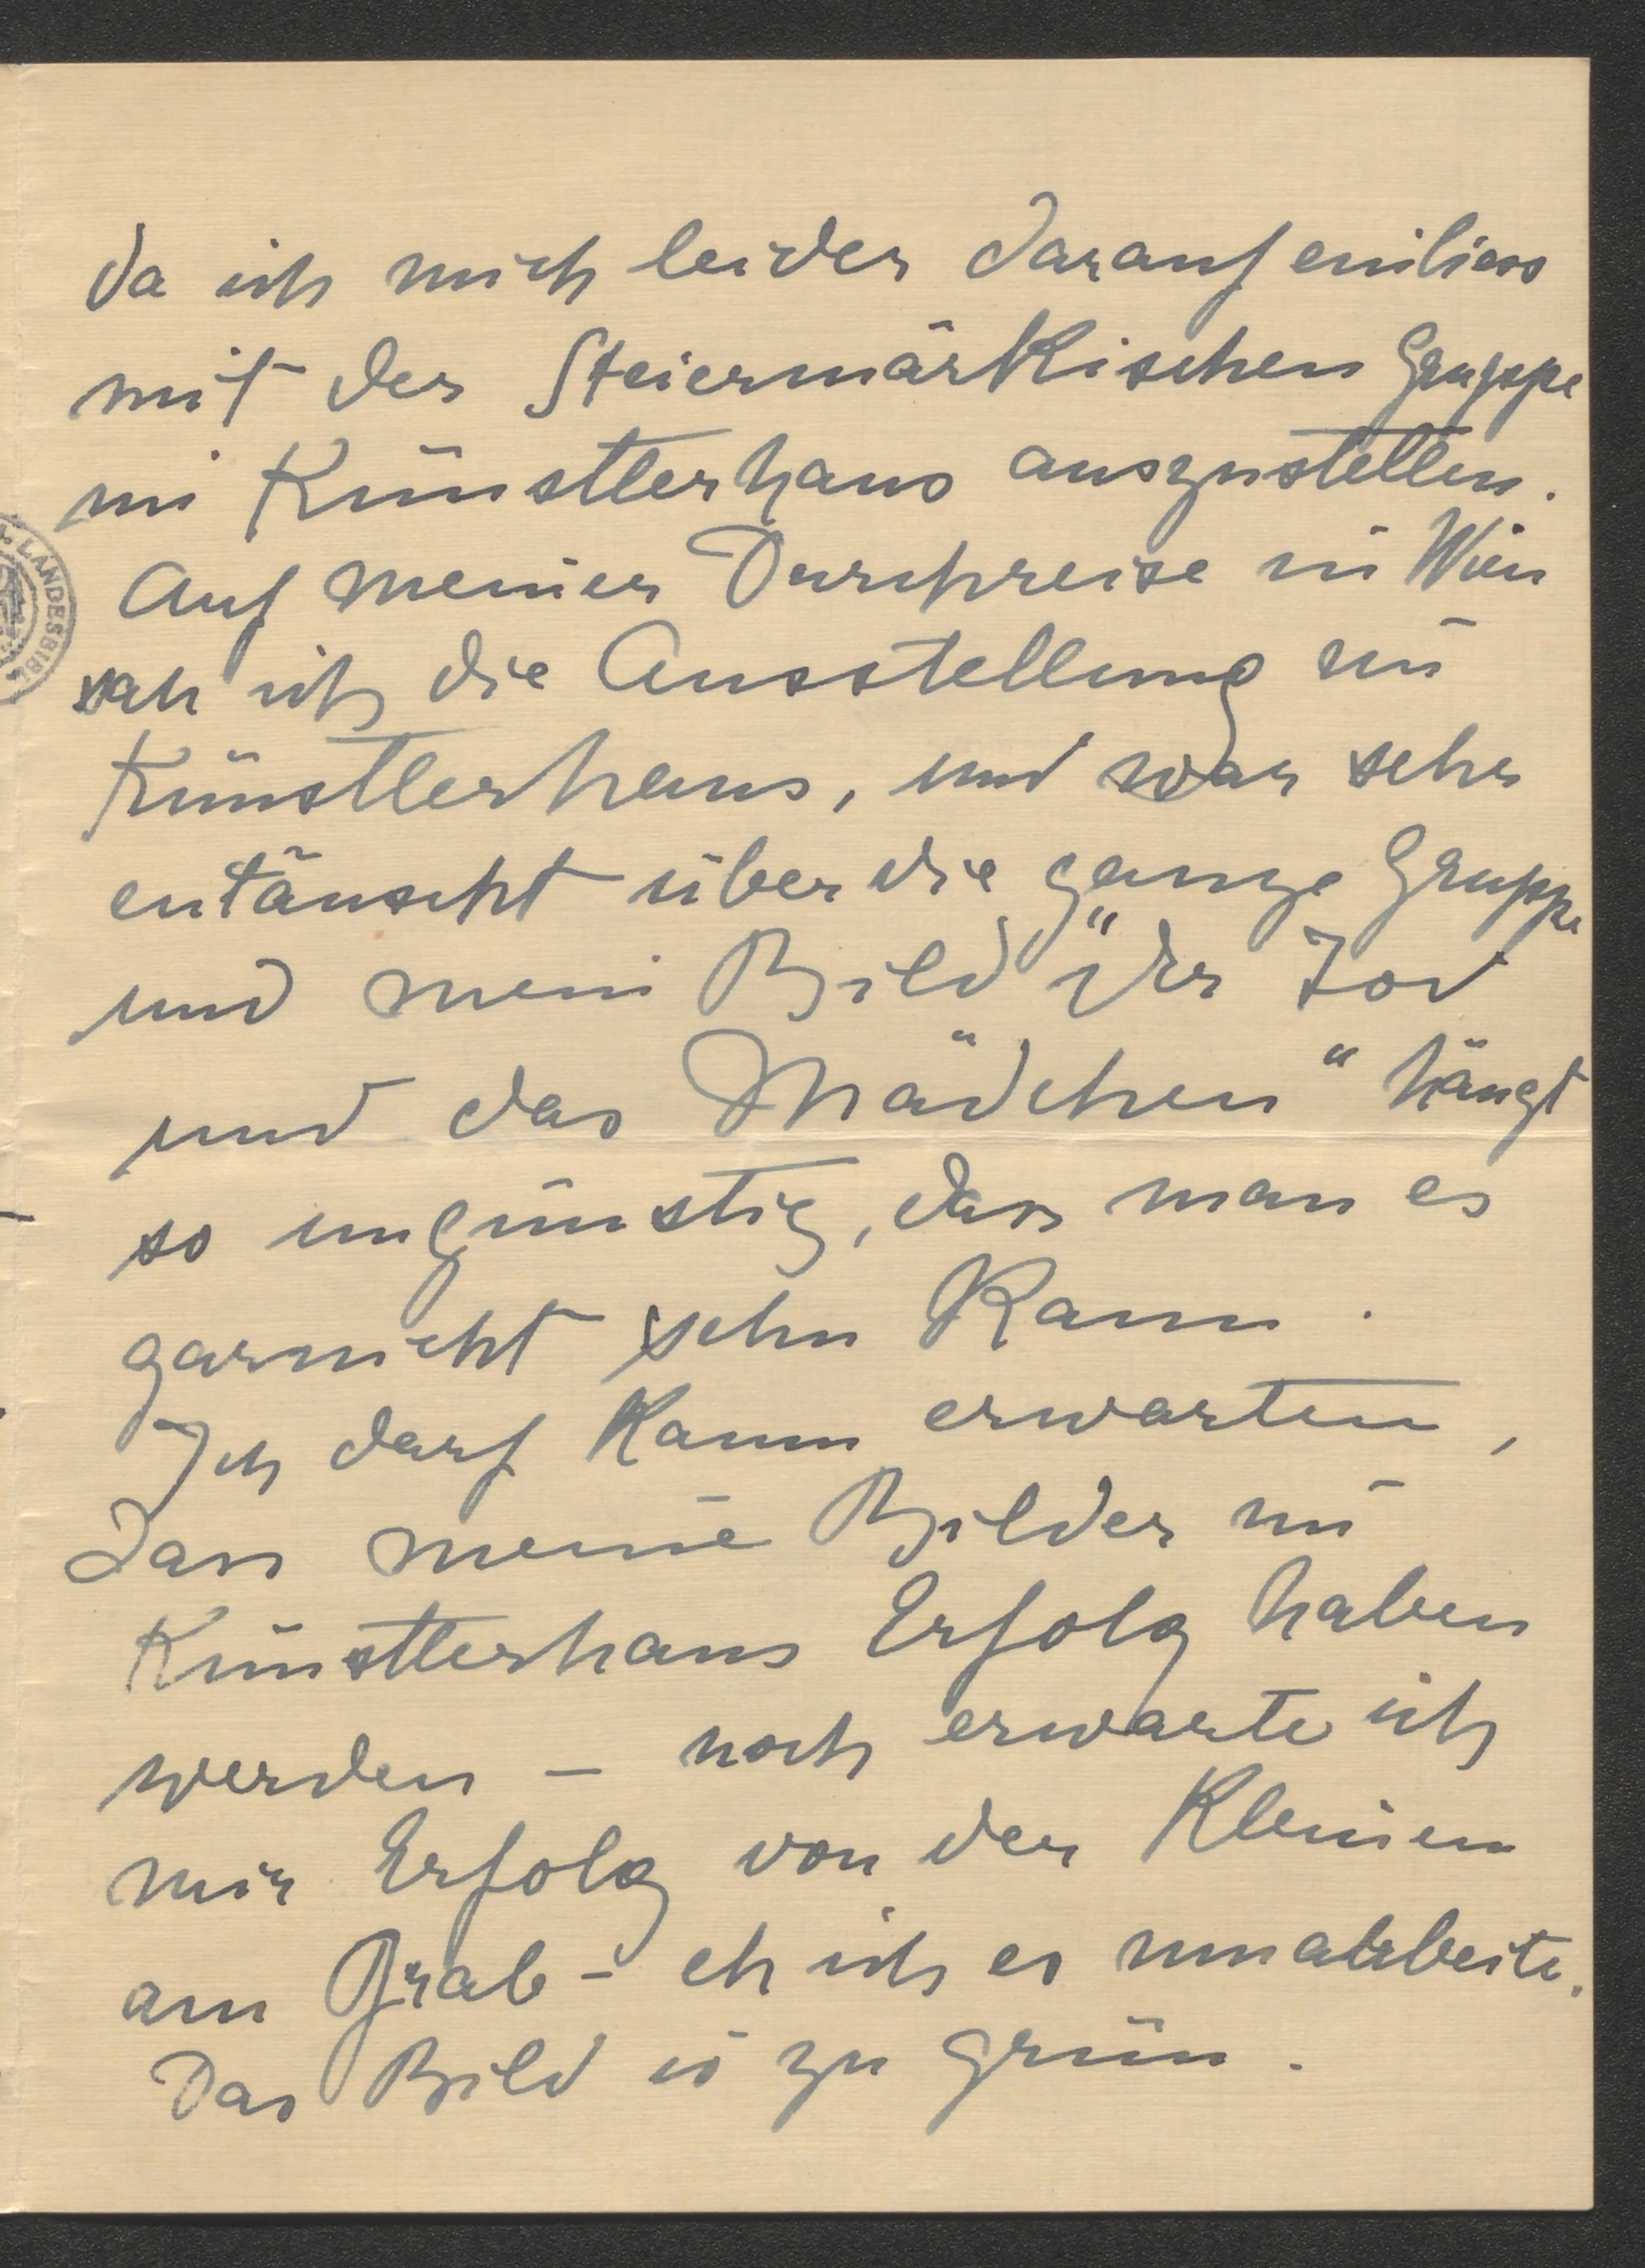 da ich mich leider darauf einliess
mit der Steiermärkischen Gruppe
im Künstlerhaus auszustellen.
Auf meiner Durchreise in Wien
sah ich die Ausstellung im
Künstlerhaus, und war sehr
entäuscht über die ganze Gruppe
und mein Bild "der Tod
und das Mädchen" hängt
so ungünstig, dass man es
garnicht sehn kann.
Ich darf kaum erwarten,
dass meine Bilder im
Künstlerhaus Erfolg haben
werden – noch erwarte ich
mir Erfolg von der Kleinen
am Grab – eh ich es umarbeite.
Das Bild is zu grün.
LANDESBIBL